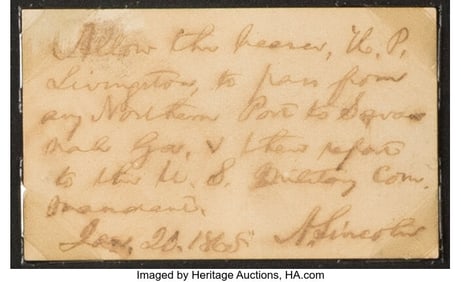 Allow the bearer, H. P.
Livingston, to pass from
any Northern Port to Savan
nah Geo. & then report
to the U. S. Military Com-
mandant.
Jan. 20. 1865 A. Lincoln
Imaged by Heritage Auctions, HA.com